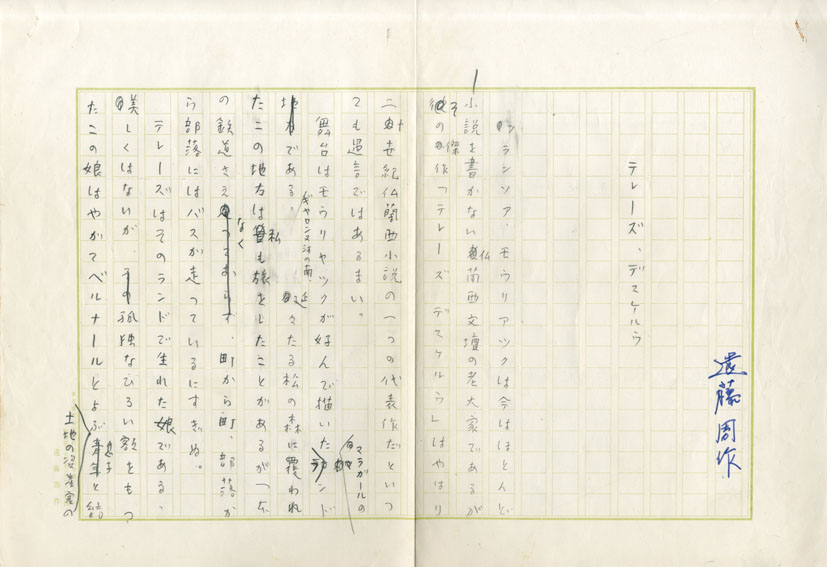 遠藤周作
テレーズ、デスケルウ
フランソア、モウリアックは今はほとんど
小説を書かない仏蘭西文壇の老大家であるが
その傑作「テレーズ デスケルウ」はやはり
二十世紀仏蘭西小説の一つの代表作だといっ
ても過言ではあるまい。
舞台はモウリヤックが好んで描いたランド
マラガールの
である、ギャロンヌ河の南、延々たる松の森に覆われ
たこの地方は私も旅をしたことがあるが一本
の鉄道さえなく、町から町、部落か
ら部落にはバスが走っているにすぎぬ。
テレーズはそのランドで生れた娘である、
美しくはないが、孤独なひろい額をもっ
たこの娘はやがてベルナールとよぶ
土地の資産家の
と結